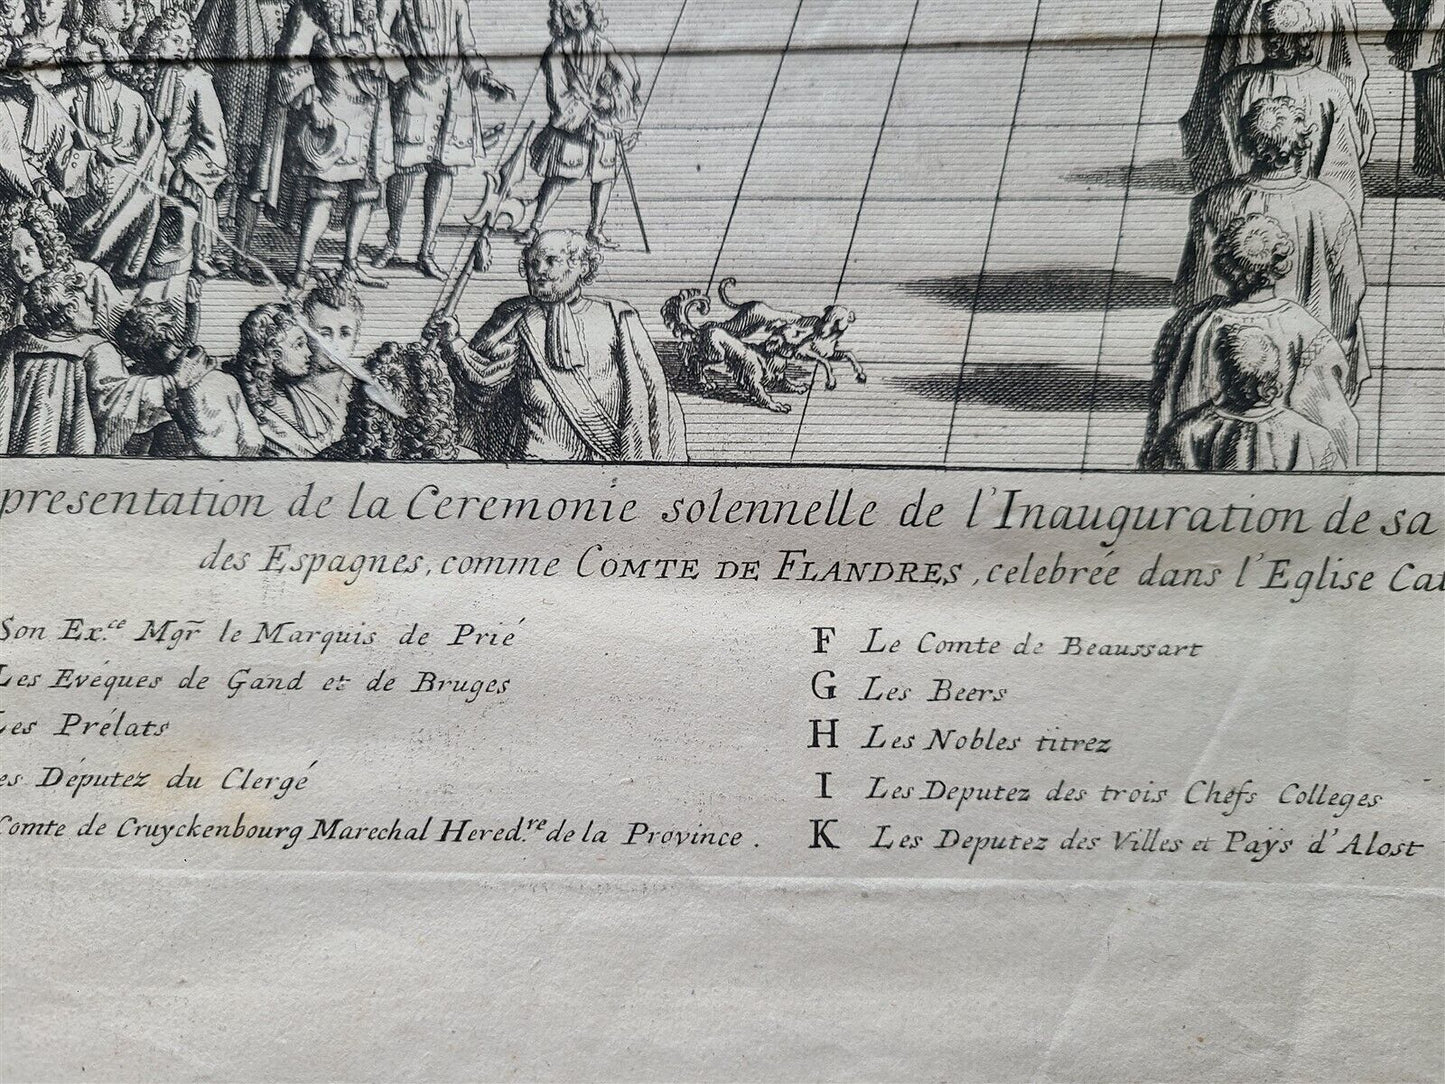 presentation de la Ceremonie solennelle de l'Inauguration de sa
des Espagnes, comme COMTE DE FLANDRES, celebrée dans l'Eglise Cat
Son Ex.ce Mgr̄ le Marquis de Prié
Les Evéques de Gand et de Bruges
Les Prélats
es Députez du Clergé
Comte de Cruyckenbourg Marechal Hered.re de la Province .
F Le Comte de Beaussart
G Les Beers
H Les Nobles titrez
I Les Deputez des trois Chefs Colleges
K Les Deputez des Villes et Paÿs d'Alost